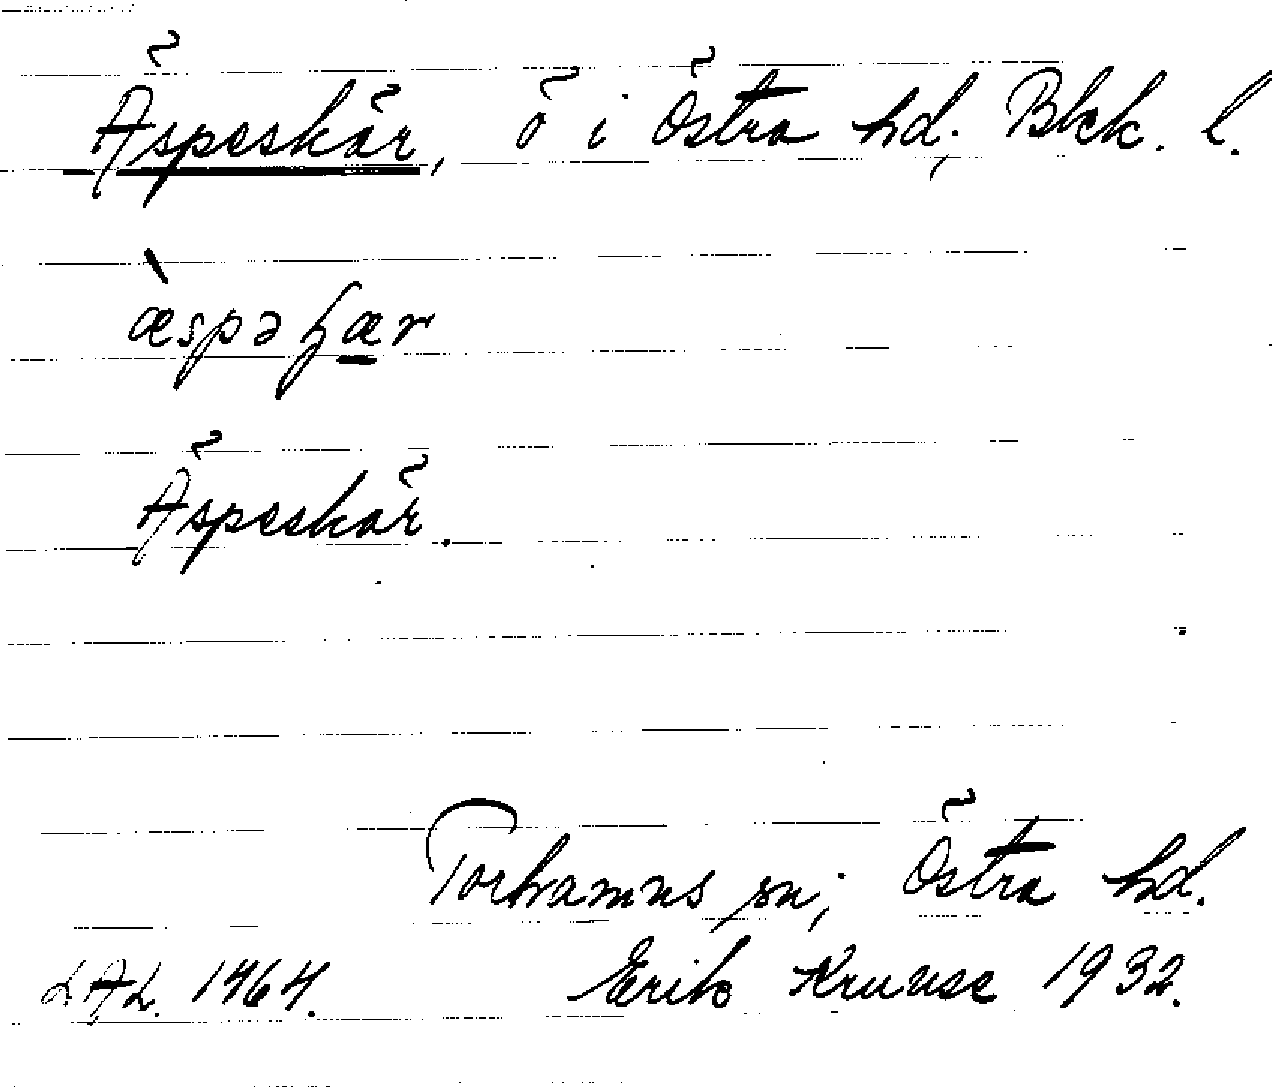 Äspeskär, ö i Östra hd; Blek. l.
æ̀spəɧær
Äspeskär.
Torhamns sn; Östra hd.
LAL. 1464. Erik Kruuse 1932.